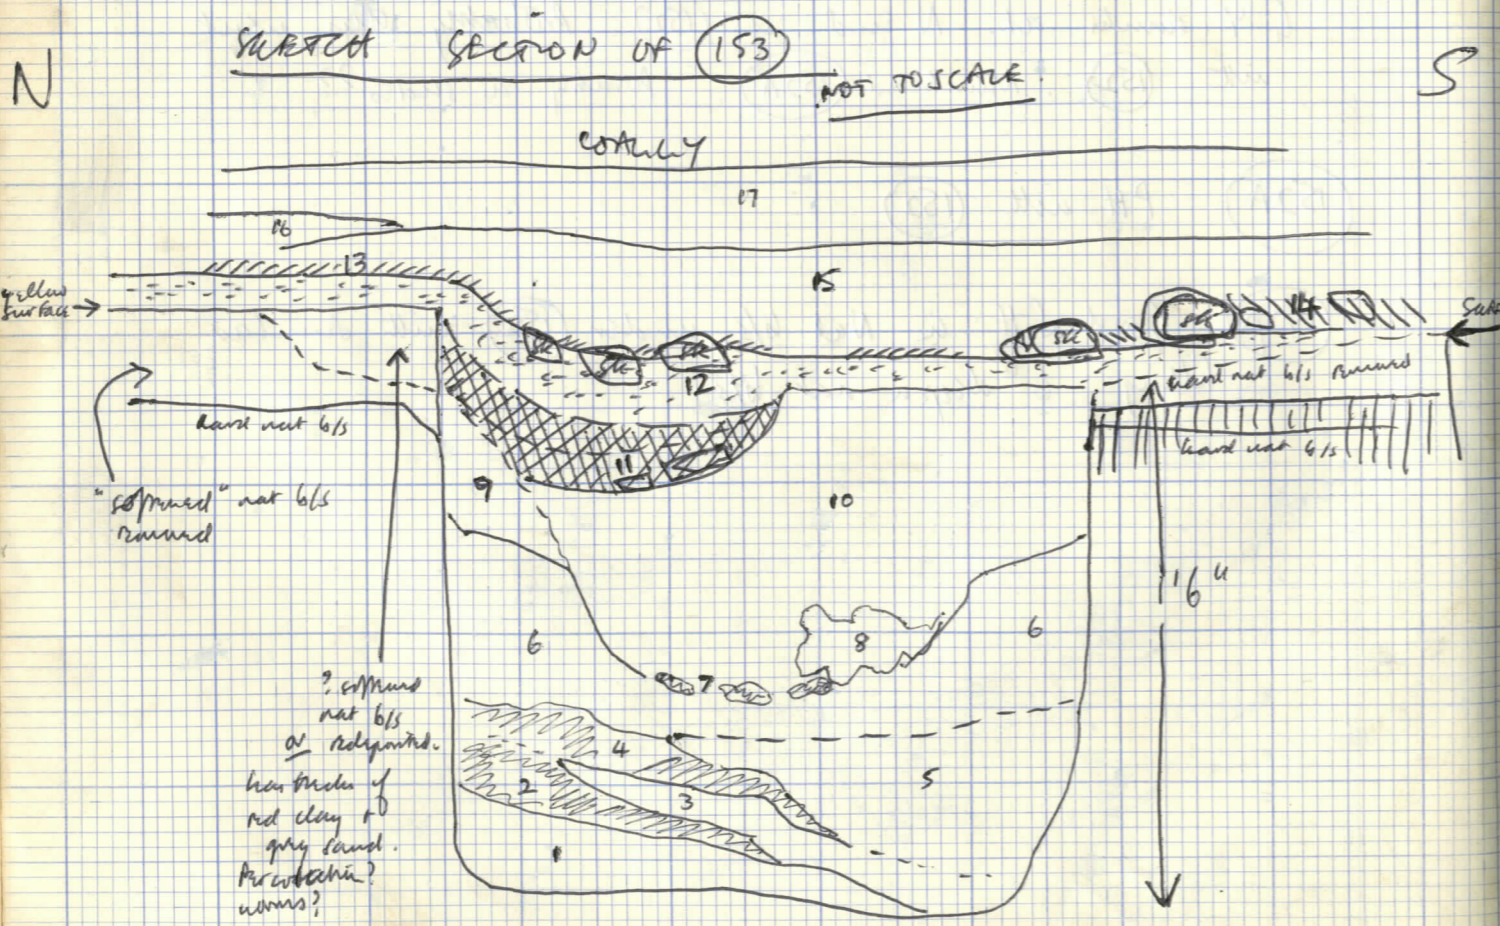 SKETCH SECTION OF 153
NOT TO SCALE.
N
S
COALLY
17
16
13
15
yellow
surface
SK
SK
SK
SK
SK
14
12
hard nat b/s removed
hard nat b/s
hard nat b/s
"softened" nat b/s
removed
11
9
10
1'6"
6
8
6
7
? softened
nat b/s
or redeposited.
has treads of
red clay +
grey sand.
Percolation?
worms?
4
5
2
3
1